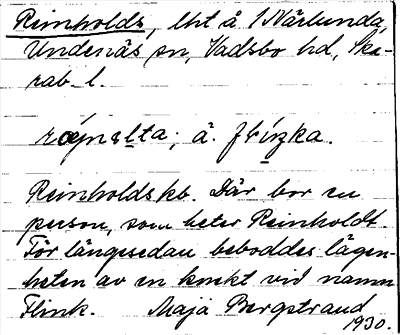 Reinholds, lht å 1 Närlunda,
Undenäs sn, Vadsbo hd, Ska-
rab. l.
ræɲs​lta; ä. flízka.
Reinholdskb. Där bor en
person, som heter Reinholdt.
För längesedan beboddes lägen-
heten av en knekt vid namn
Flink. Maja Bergstrand
1930.